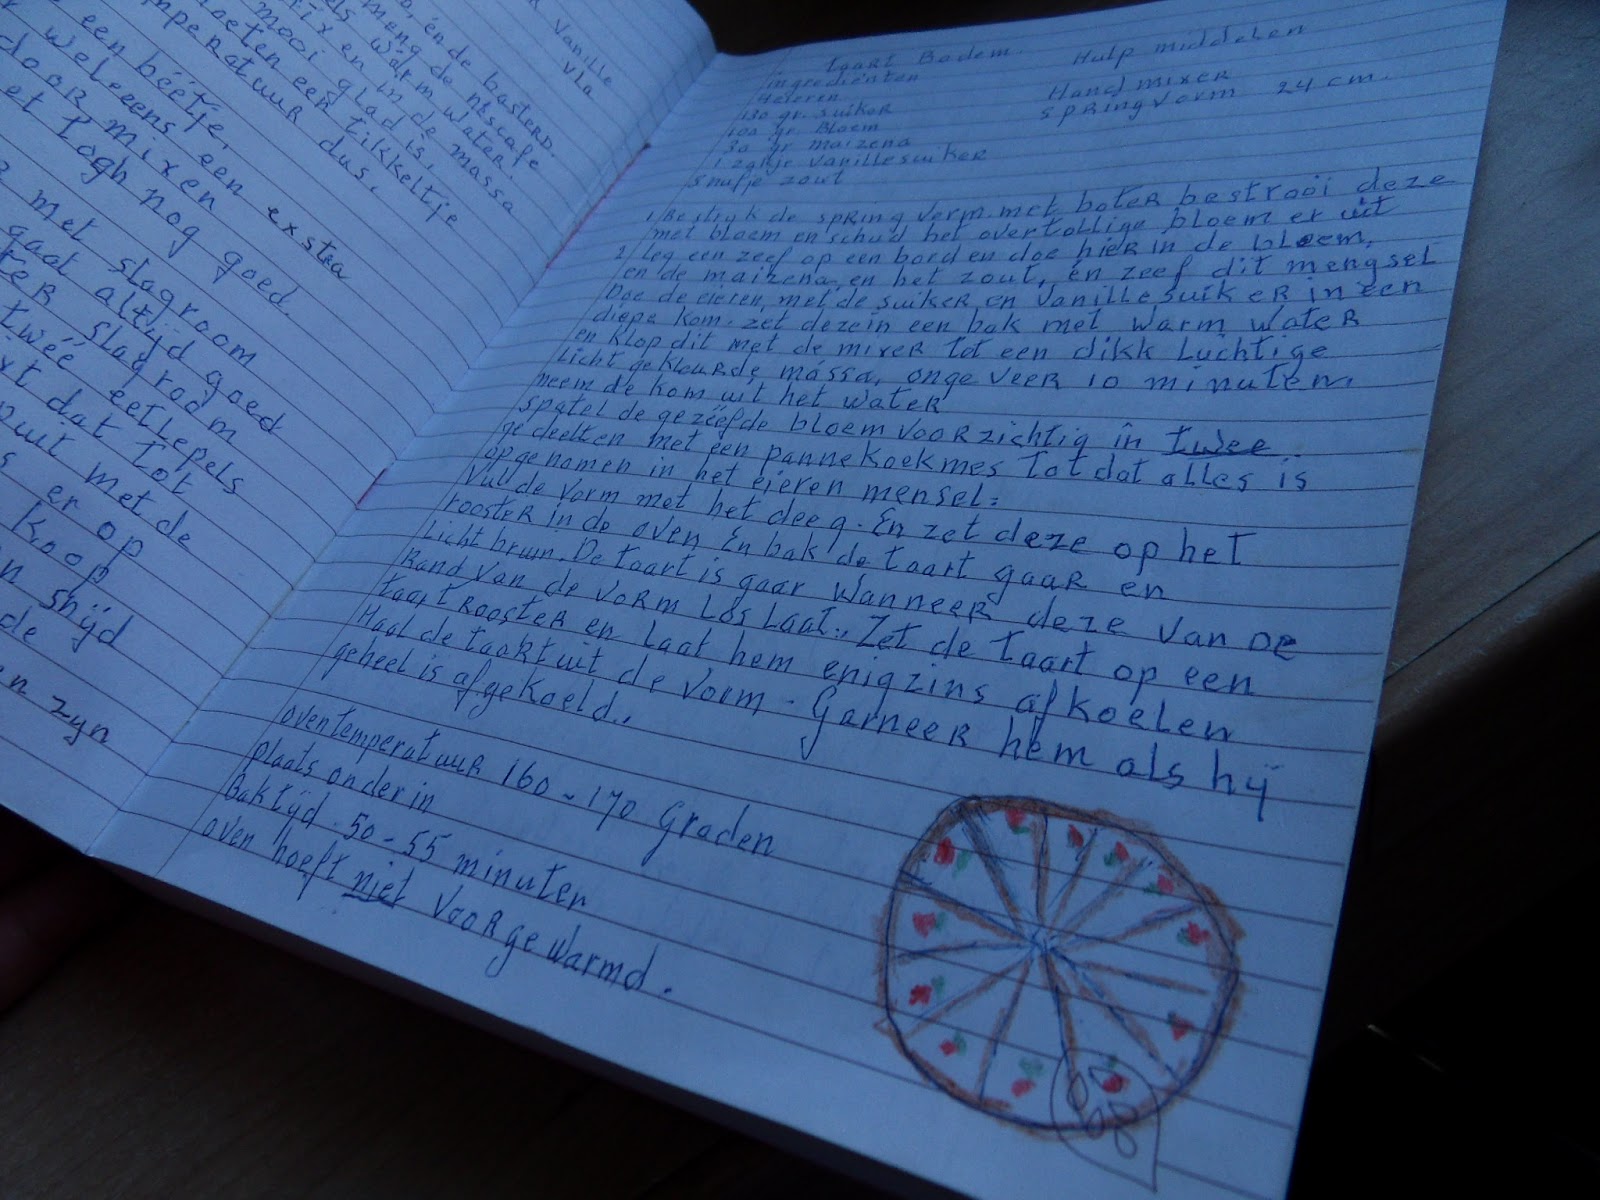 R Vanille
vla
en de basterd.
meng de nescafe
warm water.
mixen in de massa
mooi glad is.
moeten een tikkeltje
mperatuur dus.
een béétje,
weleens een exstra
door mixen
et togh nog goed.
met slagroom
gaat altijd goed
ter slagroom
twéé eetlepels
xt dat tot
puit met de
s er op
koop
n snijd
de
en zyn
taart Bodem.
Hulp middelen
ingrediënten
4eieren
Hand mixer
130 gr. suiker
springvorm 24 cm.
100 gr Bloem
30 gr maizena
1 zakje vanillesuiker
Snufje zout
1/Bestryk de springvorm met boter bestrooi deze
met bloem en schud het overtollige bloem er uit
2/ leg een zeef op een bord en doe hier in de bloem,
en de maizena, en het zout, én zeef dit mengsel
Doe de eieren, met de suiker en Vanillesuiker in een
diepe kom. zet deze in een bak met warm water
en klop dit met de mixer tot een dikk Luchtige
licht gekleurde massa, ongeveer 10 minuten.
neem de kom uit het water
spatel de gezéefde bloem voorzichtig in twee
gedeelten met een pannekoekmes totdat alles is
opgenomen in het eieren mensel:
Vul de vorm met het deeg. En zet deze op het
rooster in de oven En bak de taart gaar en
licht bruin. De taart is gaar wanneer deze van de
Rand van de vorm los laat., Zet de taart op een
taartrooster en laat hem enigzins afkoelen
Haal de taart uit de vorm. Garneer hem als hij
geheel is afgekoeld..
oventemperatuur 160 - 170 Graden
plaats onder in
Baktijd. 50 - 55 minuten
oven hoeft niet voorgewarmd.